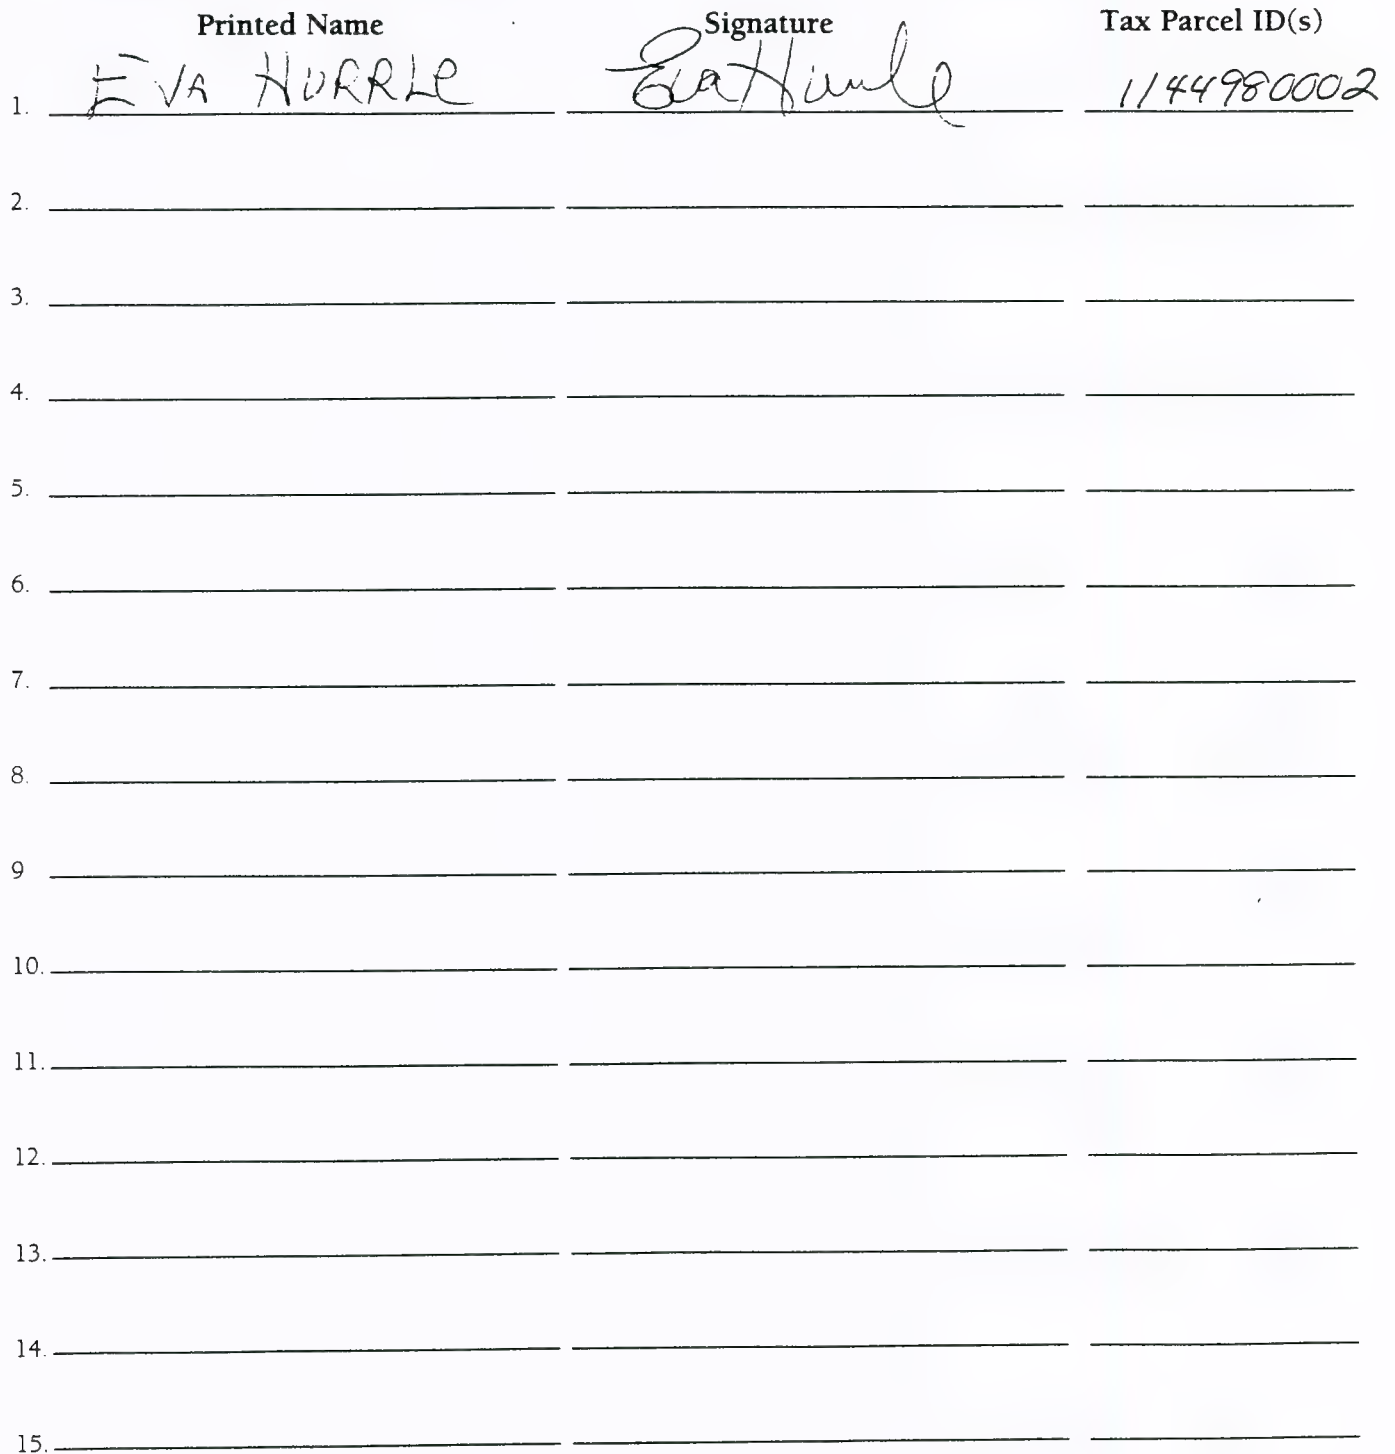 Printed Name Signature Tax Parcel ID(s)
1. EVA HURRLE Eva Hurrle 1144980002
2.
3.
4.
5.
6.
7.
8.
9
10.
11.
12.
13.
14.
15.